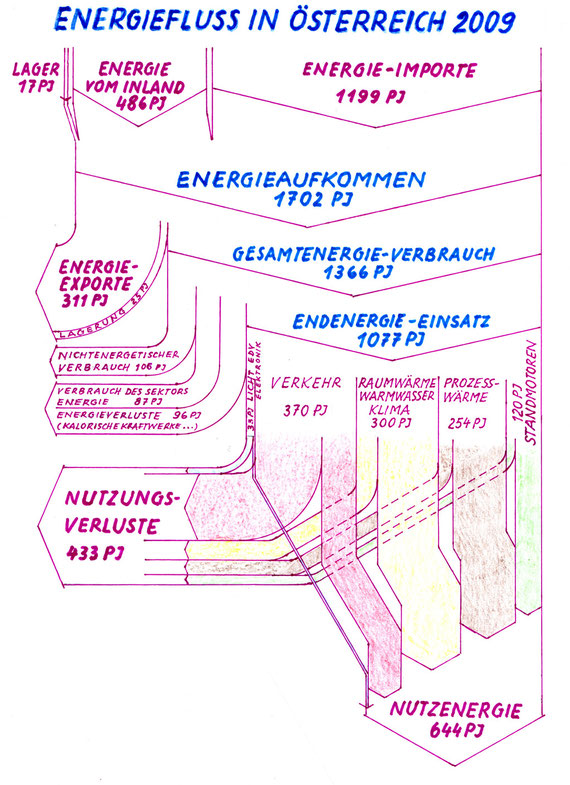 ENERGIEFLUSS IN ÖSTERREICH 2009
LAGER
17 PJ
ENERGIE
VOM INLAND
486 PJ
ENERGIE-IMPORTE
1199 PJ
ENERGIEAUFKOMMEN
1702 PJ
GESAMTENERGIE-VERBRAUCH
1366 PJ
ENERGIE-
EXPORTE
311 PJ
LAGERUNG 25 PJ
ENDENERGIE-EINSATZ
1077 PJ
NICHTENERGETISCHER
VERBRAUCH 106 PJ
VERBRAUCH DES SEKTORS
ENERGIE 87 PJ
ENERGIEVERLUSTE 96 PJ
(KALORISCHE KRAFTWERKE...)
33 PJ LICHT EDV
ELEKTRONIK
VERKEHR
370 PJ
RAUMWÄRME
WARMWASSER
KLIMA
300 PJ
PROZESS-
WÄRME
254 PJ
120 PJ
STANDMOTOREN
NUTZUNGS-
VERLUSTE
433 PJ
NUTZENERGIE
644 PJ